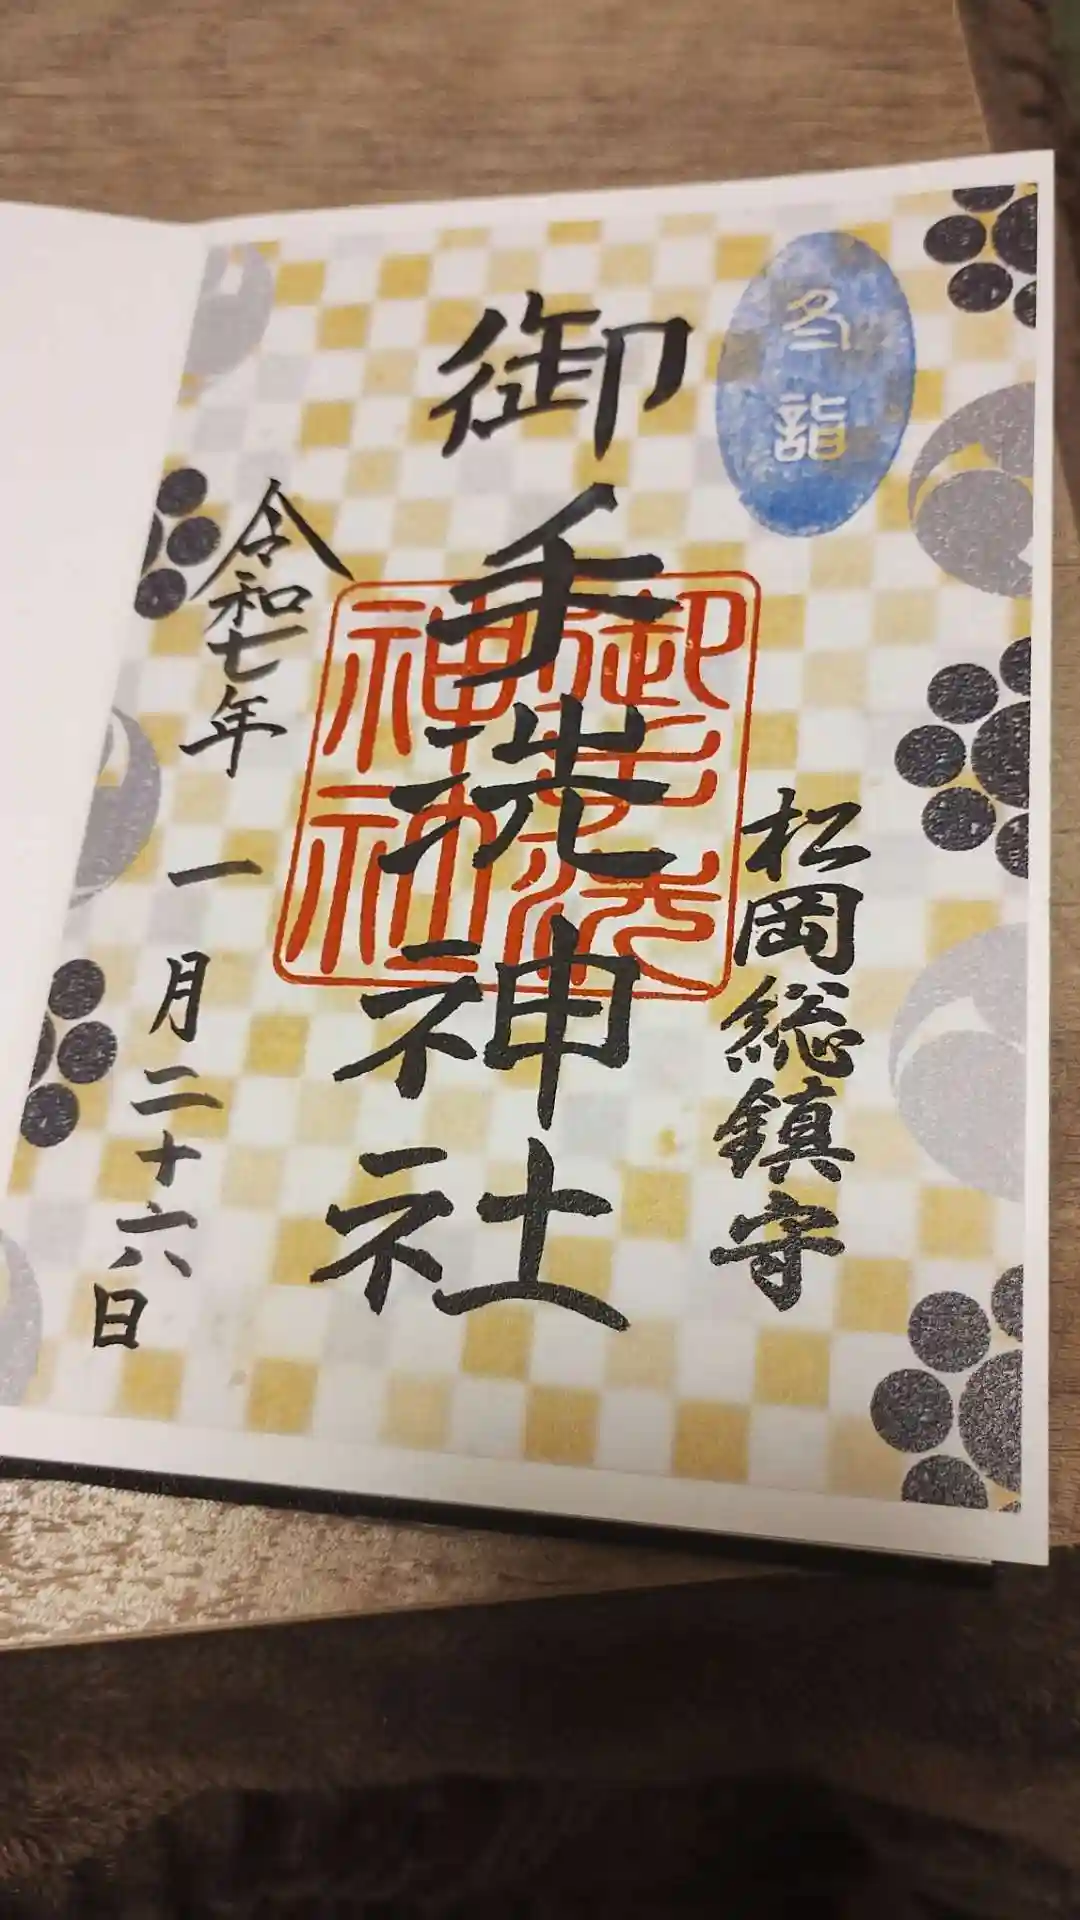 冬詣
松岡総鎮守
御手洗神社
御手洗
神社
令和七年一月二十六日